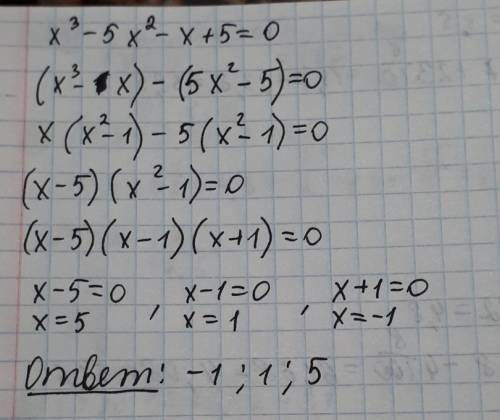 x³-5x²-x+5=0
(x³-x)-(5x²-5)=0
x(x²-1)-5(x²-1)=0
(x-5)(x²-1)=0
(x-5)(x-1)(x+1)=0
x-5=0 , x-1=0 , x+1=0
x=5 x=1 x=-1
Ответ: -1; 1; 5